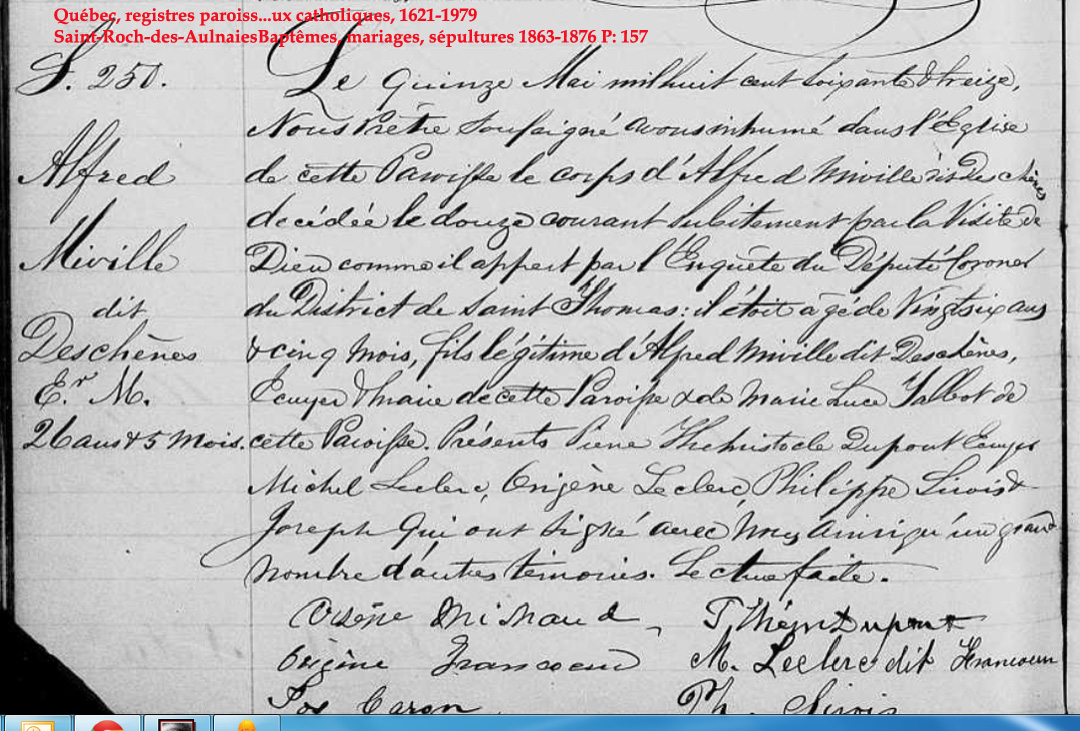 Québec, registres paroiss...ux catholiques, 1621-1979
Saint-Roch-des-AulnaiesBaptêmes, mariages, sépultures 1863-1876 P: 157
S. 250.
Alfred
Miville
dit
Deschênes
E.r M.
26 ans & 5 Mois.
Le quinze Mai mil huit cent soixante & treize,
Nous Prêtre soussigné avons inhumé dans l'Eglise
de cette Paroisse le corps d'Alfred Miville dit Deschênes
décédée le douze courant subitement par la Visite de
Dieu comme il appert par l'Enquête du Député Coroner
du District de Saint Thomas: il étoit âgé de Vingt six ans
& cinq Mois, fils légitime d'Alfred Miville dit Deschênes,
Ecuyer & Maire de cette Paroisse & de Marie Luce Talbot de
cette Paroisse. Présents Pierre Themistocle Dupont Ecuyer
Michel Leclerc, Onigène Leclerc, Philippe Sirois &
Joseph Qui ont signé avec Nous ainsi qu'un grand
nombre d'autres témoins. Lecture faite.
Arsène Michaud P. Thém Dupont
Origène Francoeur M. Leclerc dit Francoeur
Jos Caron Ph. Sirois